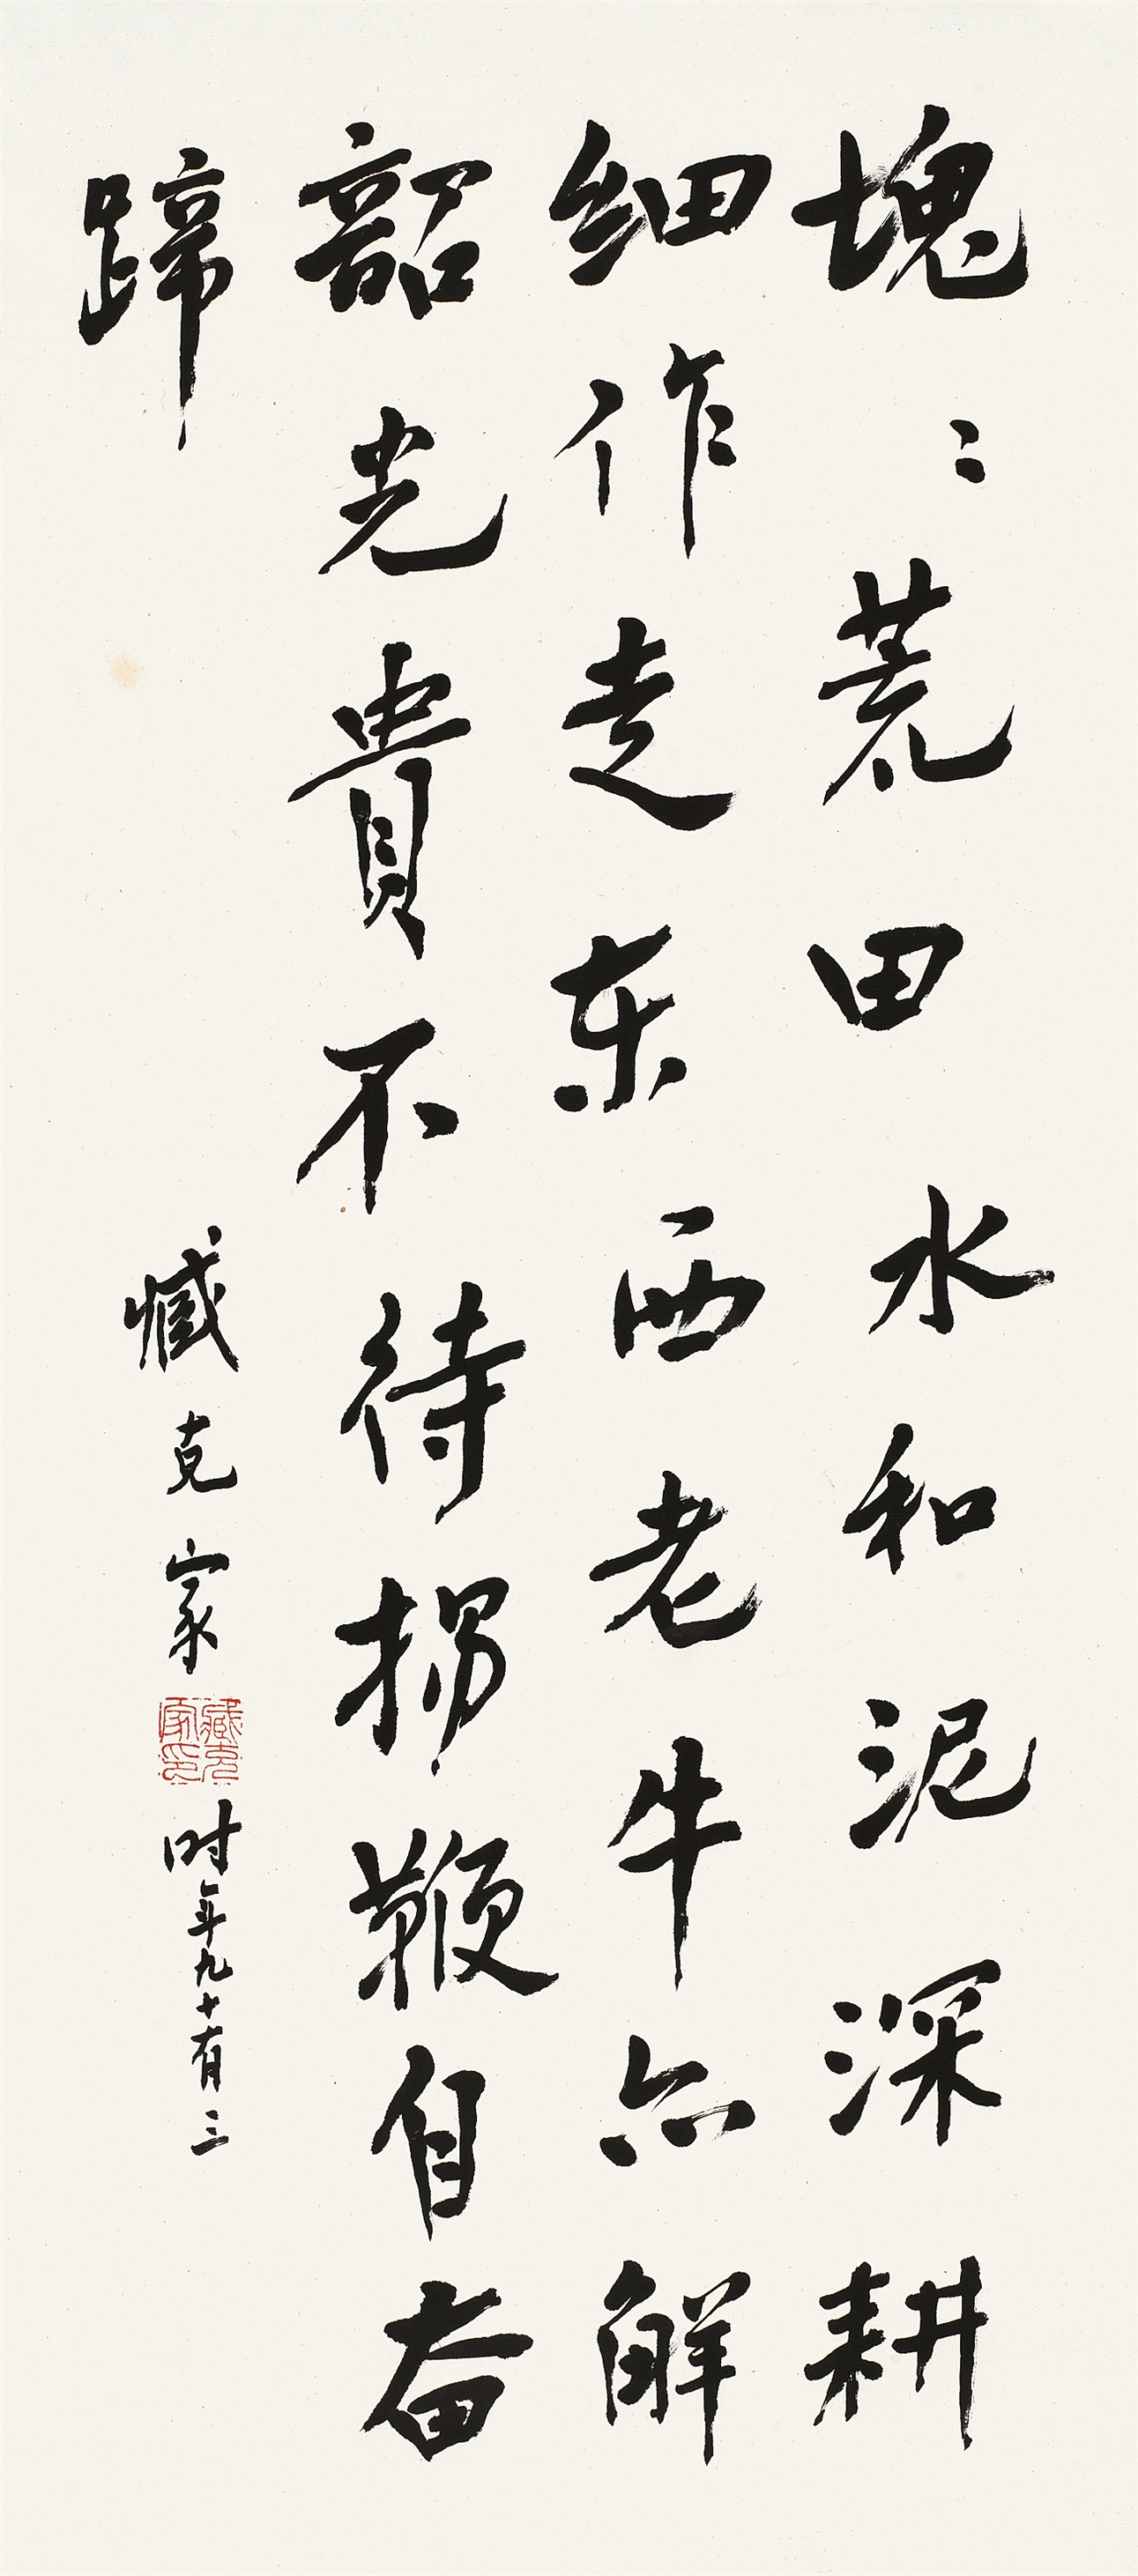 塊〻荒田水和泥深耕
细作走东西老牛亦解
韶光貴不待扬鞭自奋
蹄
臧克家
臧克家印
时年九十有三